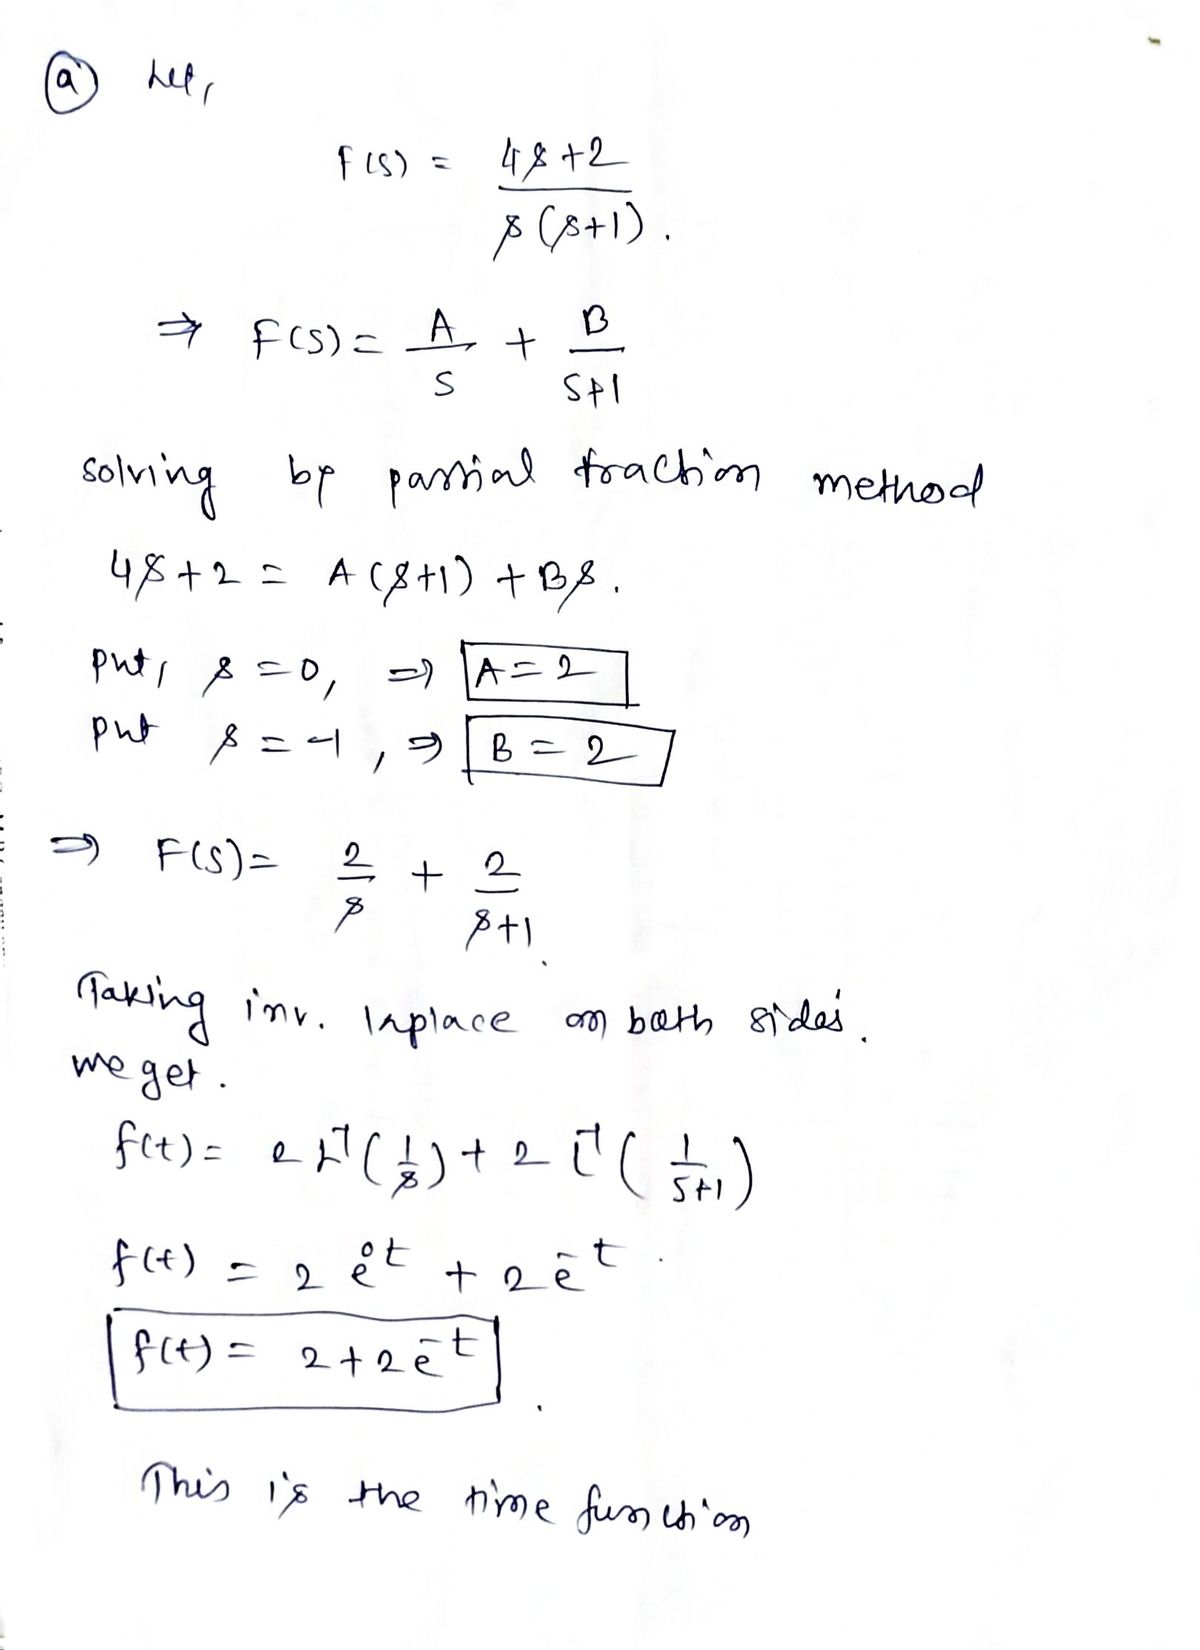 (a) Let,
F(s) = 4s+2 / s(s+1).
⇒ F(s) = A/s + B/s+1
solving by partial fraction method
4s+2 = A(s+1) + Bs.
put, s=0, ⇒ A=2
put s=-1, ⇒ B=2
⇒ F(s) = 2/s + 2/s+1.
Taking inv. laplace on both sides.
we get.
f(t) = 2 L⁻¹(1/s) + 2 L⁻¹(1/s+1)
f(t) = 2 e⁰ᵗ + 2 e⁻ᵗ.
f(t) = 2+2e⁻ᵗ.
This is the time function